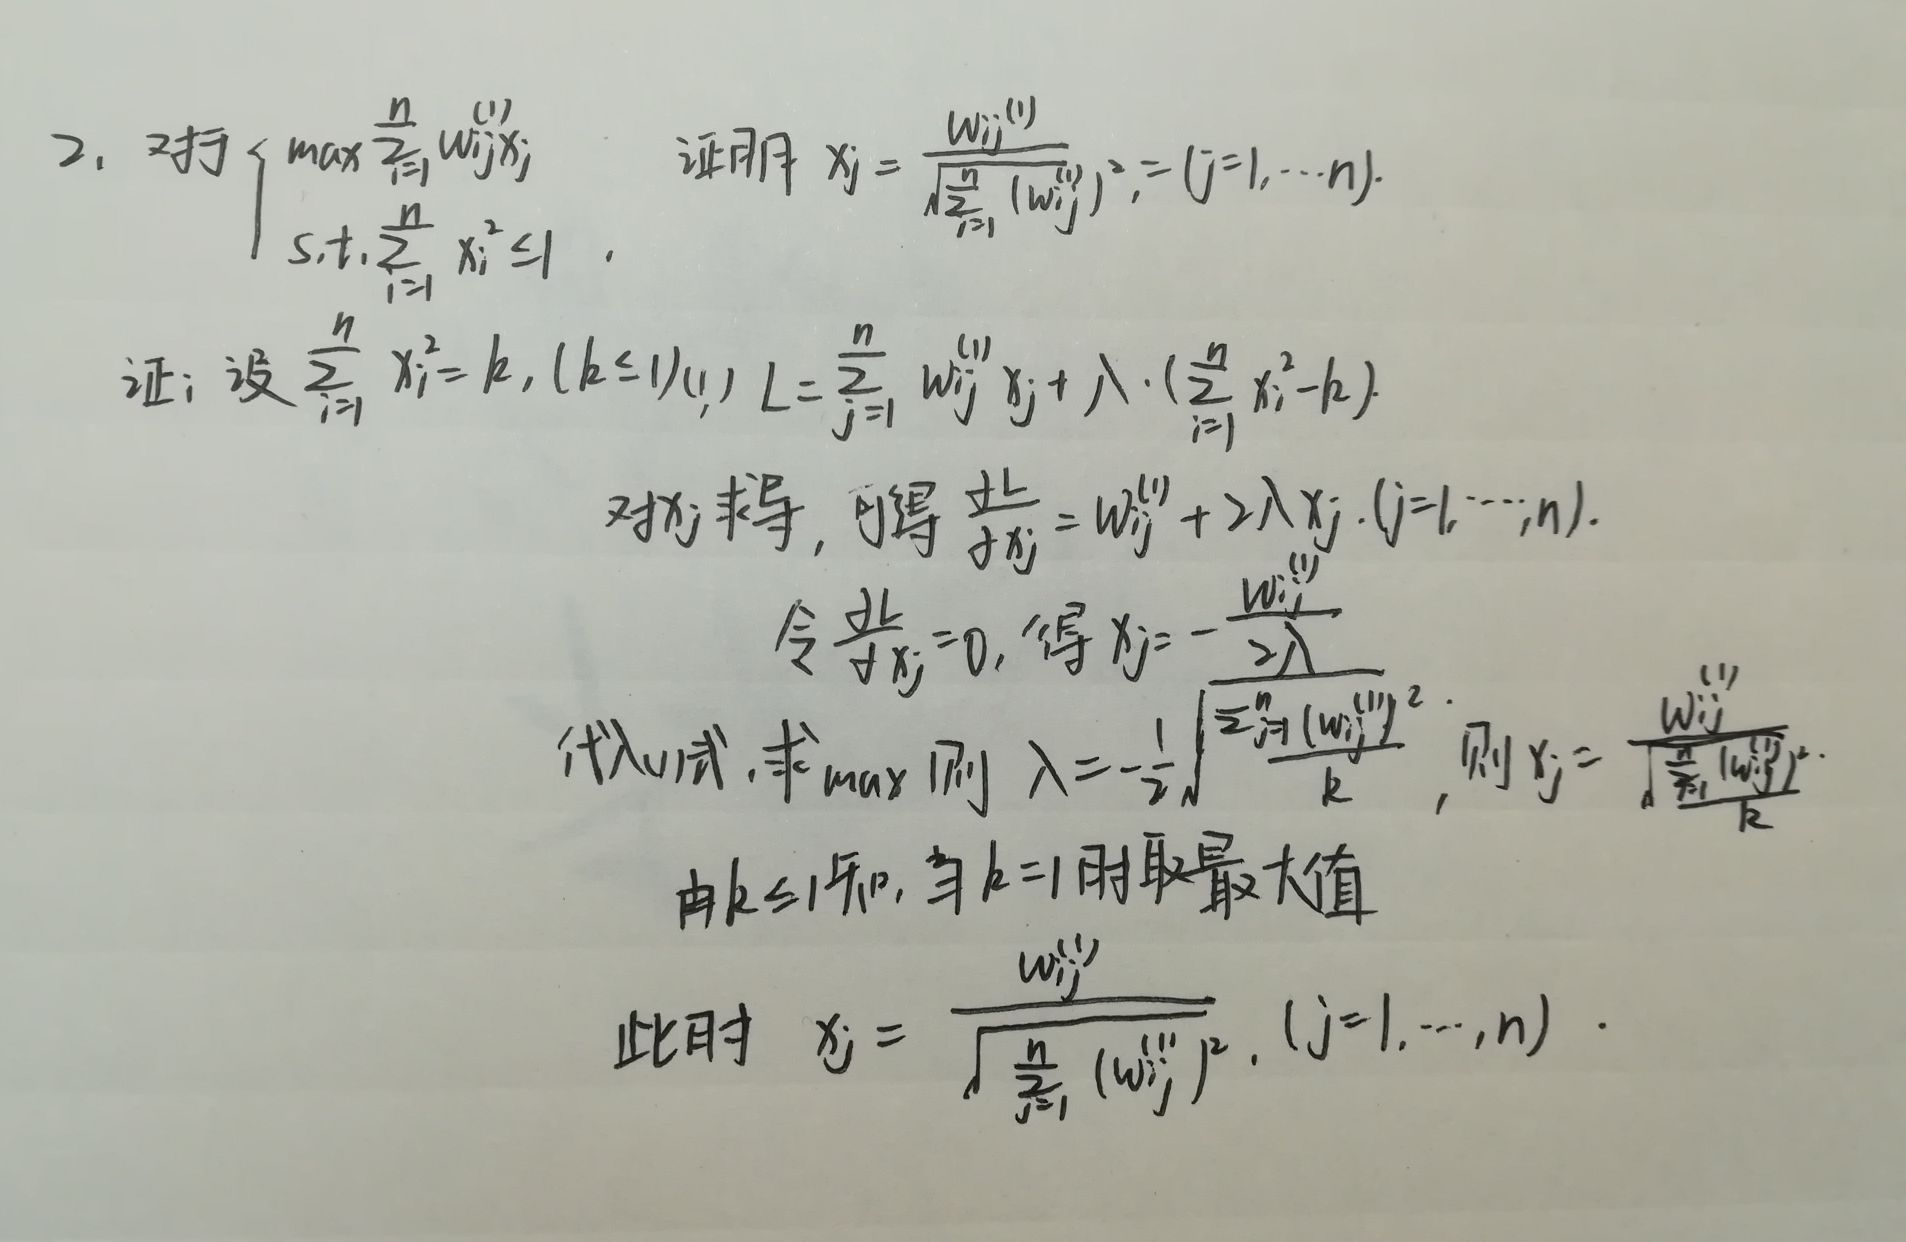 2. 对于 { max \sum_{i=1}^{n} w_{ij}^{(1)} x_j    证明 x_j = \frac{w_{ij}^{(1)}}{\sqrt{\sum_{i=1}^{n} (w_{ij}^{(1)})^2}}, = (j=1,···n).
s.t. \sum_{i=1}^{n} x_i^2 ≤ 1 .
证: 设 \sum_{i=1}^{n} x_i^2 = k, (k≤1) (1) L = \sum_{j=1}^{n} w_{ij}^{(1)} x_j + λ·(\sum_{i=1}^{n} x_i^2 - k).
对x_j求导, 可得 \frac{∂L}{∂x_j} = w_{ij}^{(1)} + 2λx_j. (j=1,···,n).
令 \frac{∂L}{∂x_j} = 0, 得 x_j = -\frac{w_{ij}^{(1)}}{2λ}
代入(1)式, 求max 则 λ = -\frac{1}{2}\sqrt{\frac{\sum_{j=1}^{n} (w_{ij}^{(1)})^2}{k}}, 则 x_j = \frac{w_{ij}^{(1)}}{\sqrt{\frac{\sum_{j=1}^{n} (w_{ij}^{(1)})^2}{k}}}.
由k≤1知, 当k=1时取最大值
此时 x_j = \frac{w_{ij}^{(1)}}{\sqrt{\sum_{j=1}^{n} (w_{ij}^{(1)})^2}}. (j=1,···,n) .